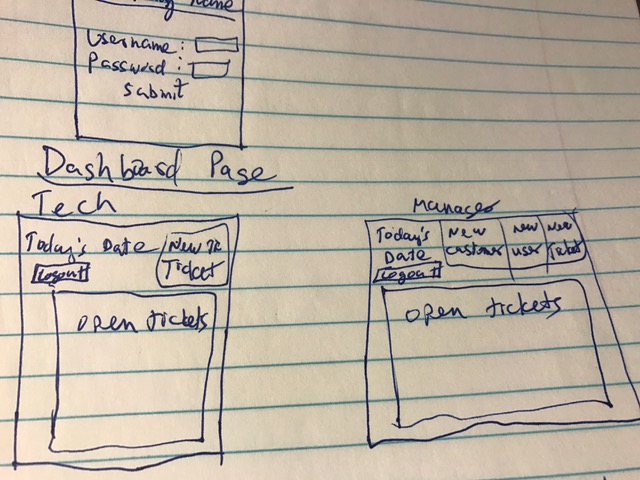 Name
Username:
Password:
Submit
Dashboard Page
Tech
Today's Date
New
Ticket
Logout
open tickets
Manager
Today's
Date
Logout
New
customer
new
user
New
Ticket
open tickets